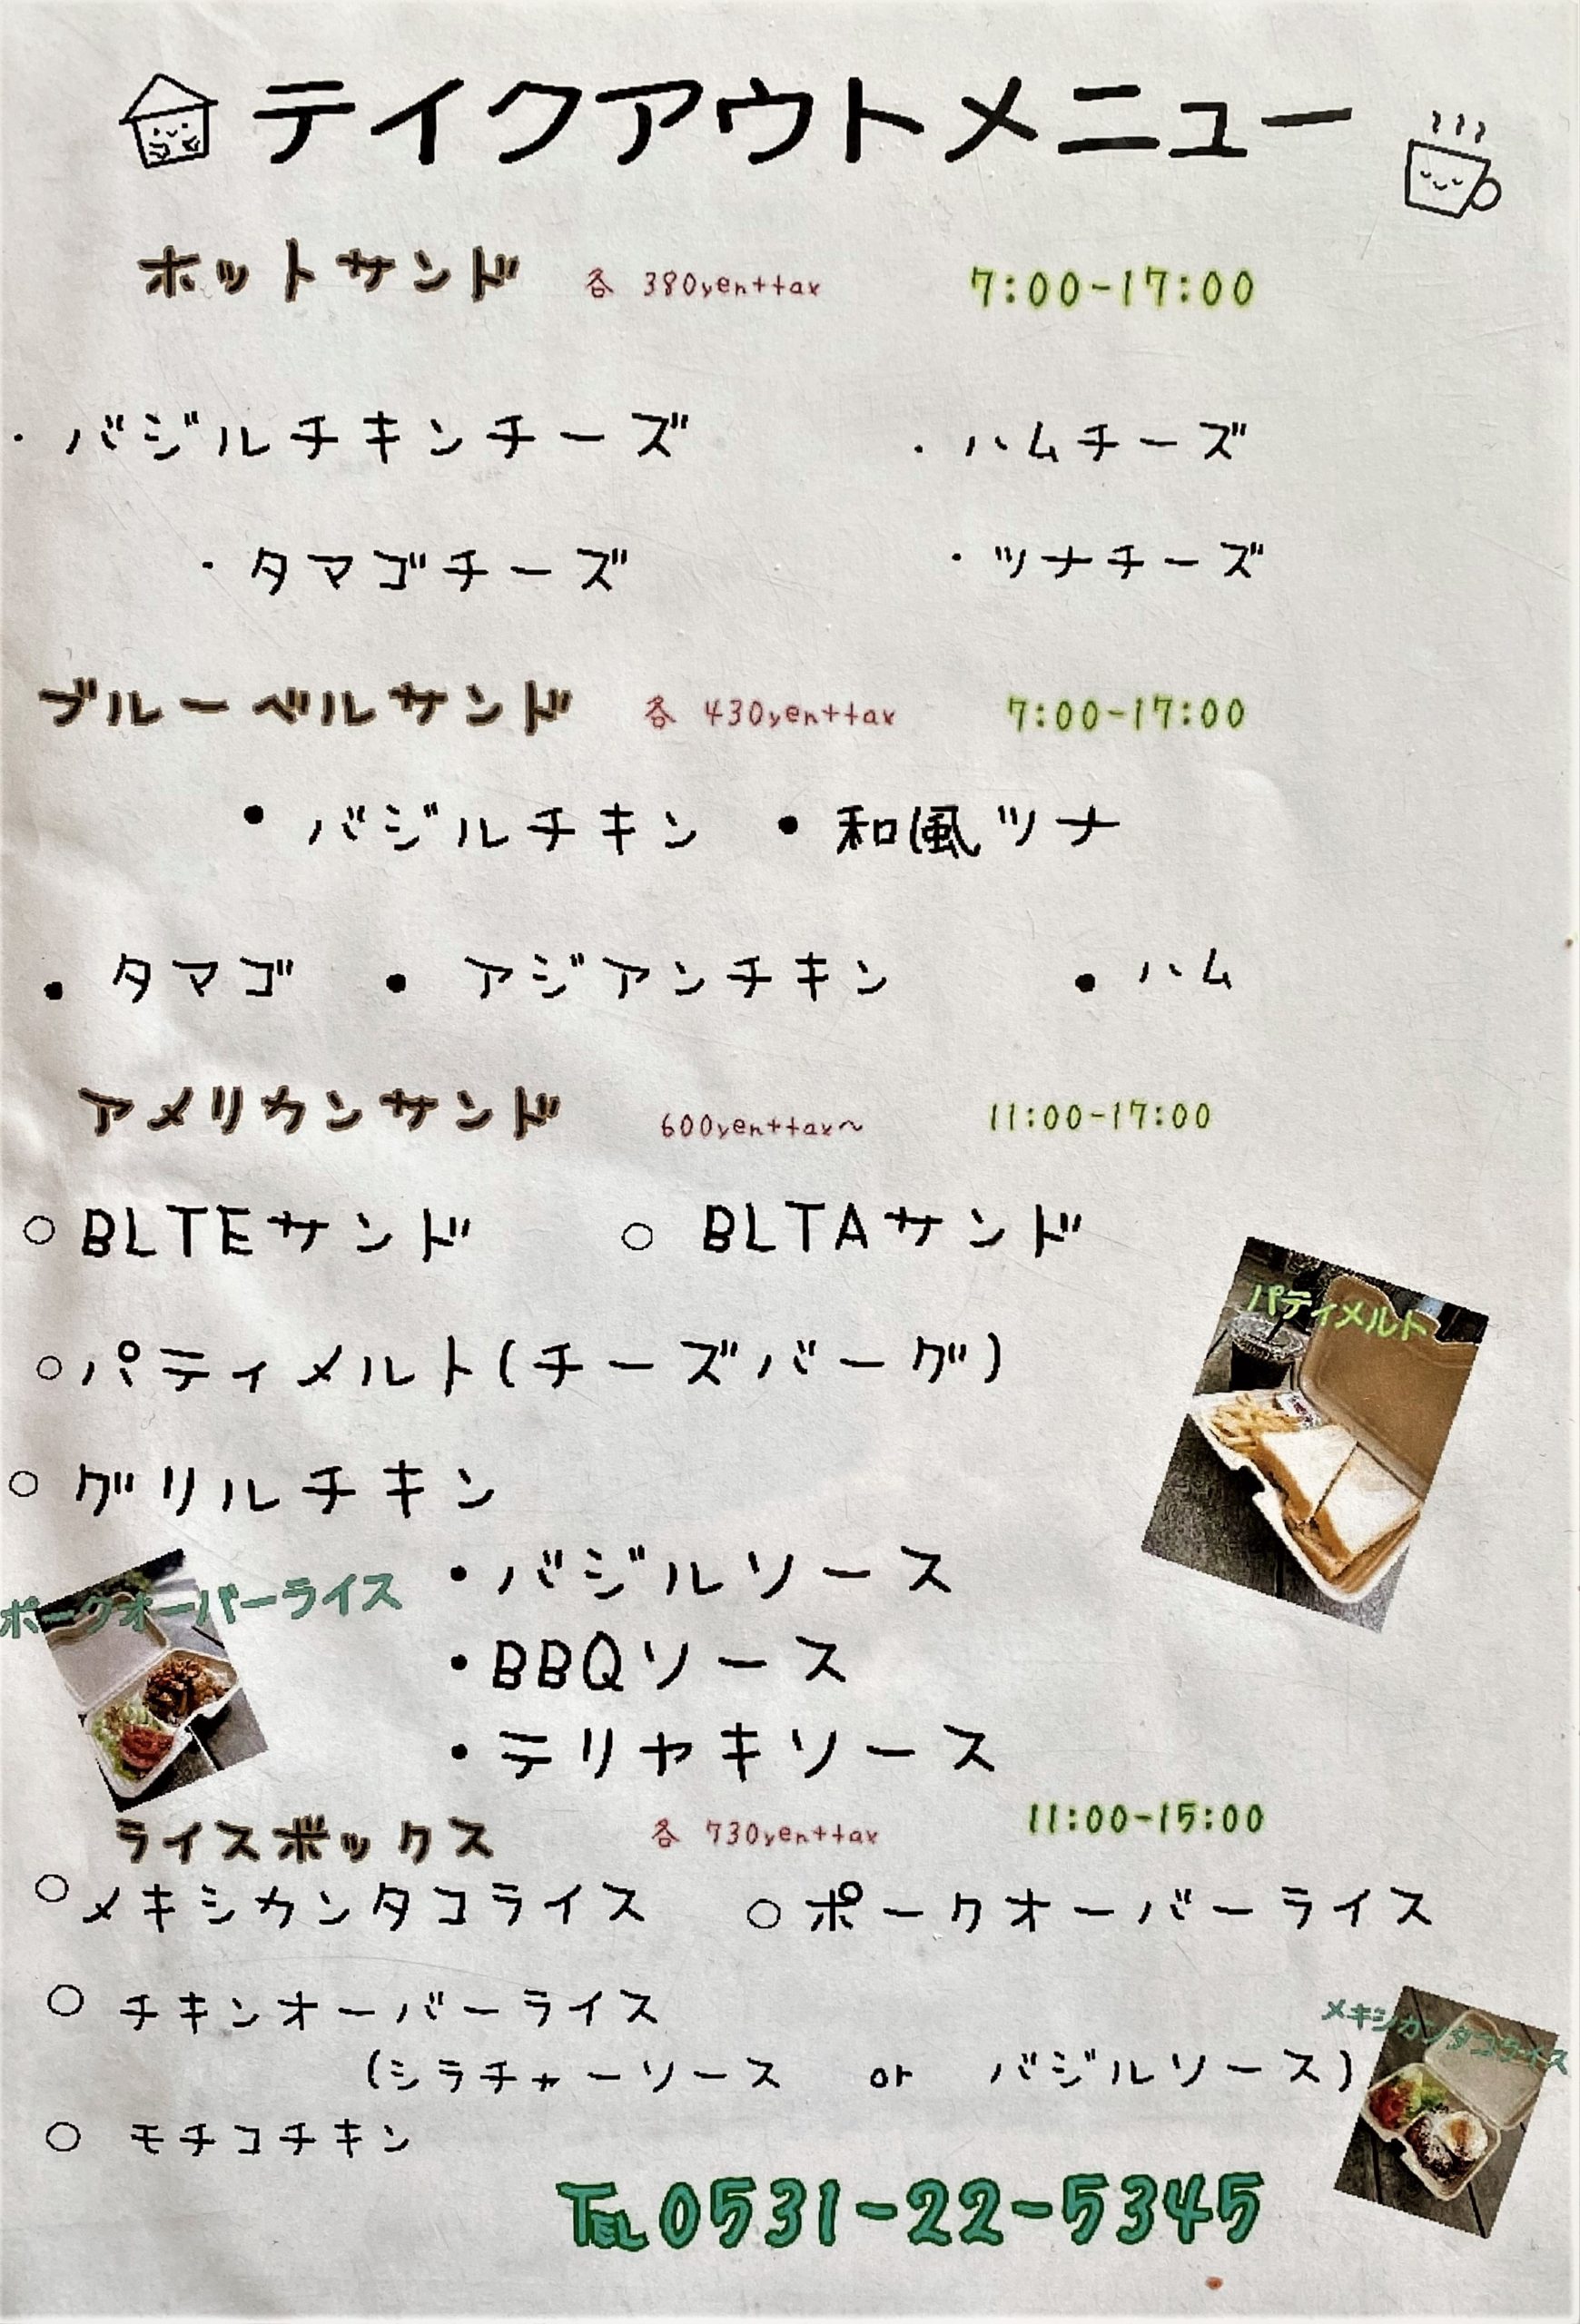 テイクアウトメニュー
ホットサンド 各 380yen+tax 7:00-17:00
・バジルチキンチーズ ・ハムチーズ
・タマゴチーズ ・ツナチーズ
ブルーベルサンド 各 430yen+tax 7:00-17:00
・バジルチキン ・和風ツナ
・タマゴ ・アジアンチキン ・ハム
アメリカンサンド 600yen+tax〜 11:00-17:00
○BLTEサンド ○BLTAサンド
パティメルト
○パティメルト(チーズバーグ)
○グリルチキン
・バジルソース
ポークオーバーライス
・BBQソース
・テリヤキソース
ライスボックス 各 730yen+tax 11:00-15:00
○メキシカンタコライス ○ポークオーバーライス
○チキンオーバーライス
メキシカンタコライス
(シラチャーソース or バジルソース)
○モチコチキン
TEL 0531-22-5345